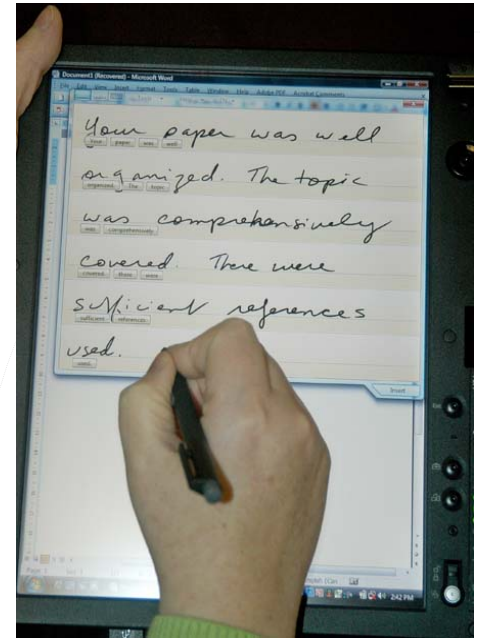 Document1 (Recovered) - Microsoft Word
File Edit View Insert Format Tools Table Window Help Adobe PDF Acrobat Comments
Your paper was well
Your paper was well
organized. The topic
organized. The topic
was comprehensively
was comprehensively
covered. There were
covered. there were
sufficient references
sufficient references
used.
used.
Insert
2:42 PM